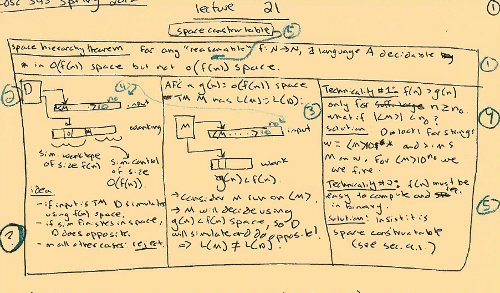 COSC 545 Spring 2012
lecture 21
①
space constructable
⑤
space hierarchy theorem For any "reasonable" f: N→N, ∃ language A decidable
* in O(f(n)) space but not o(f(n)) space.
①
②
D
<M> 10
input
working
sim. work tape
of size f(n)
sim control
of size
O(f(n)).
idea:
- if input is TM D simulates
using f(n) space.
- if sim finishes in space,
D does opposite.
- in all other cases: reject.
AFC ∃ g(n): o(f(n)) space
TM M has L(M) = L(D).
③
M
input
work
g(n) < f(n)
→ consider M run on <M>.
→ M will decide using
g(n) < f(n) space, so D
will simulate and do opposite!
⇒ L(M) ≠ L(D).
Technicality #1: f(n) > g(n)
only for n ≥ n₀.
what if |<M>| < n₀?
solution: D looks for strings
w = <M>10* and sims
M on w. For <M>10^n₀ we
are fine.
④
Technicality #2: f(n) must be
easy to compute and
in binary.
Solution: Insist it is
space constructable
(see sec. 9.1.)
⑤